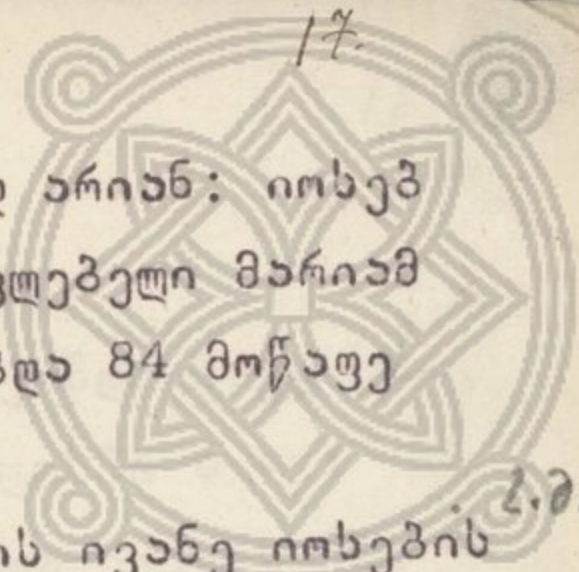 17.
არიან: იოსებ
ვლებელი მარიამ
და 84 მოწაფე
ს.მ
ის ივანე იოსების